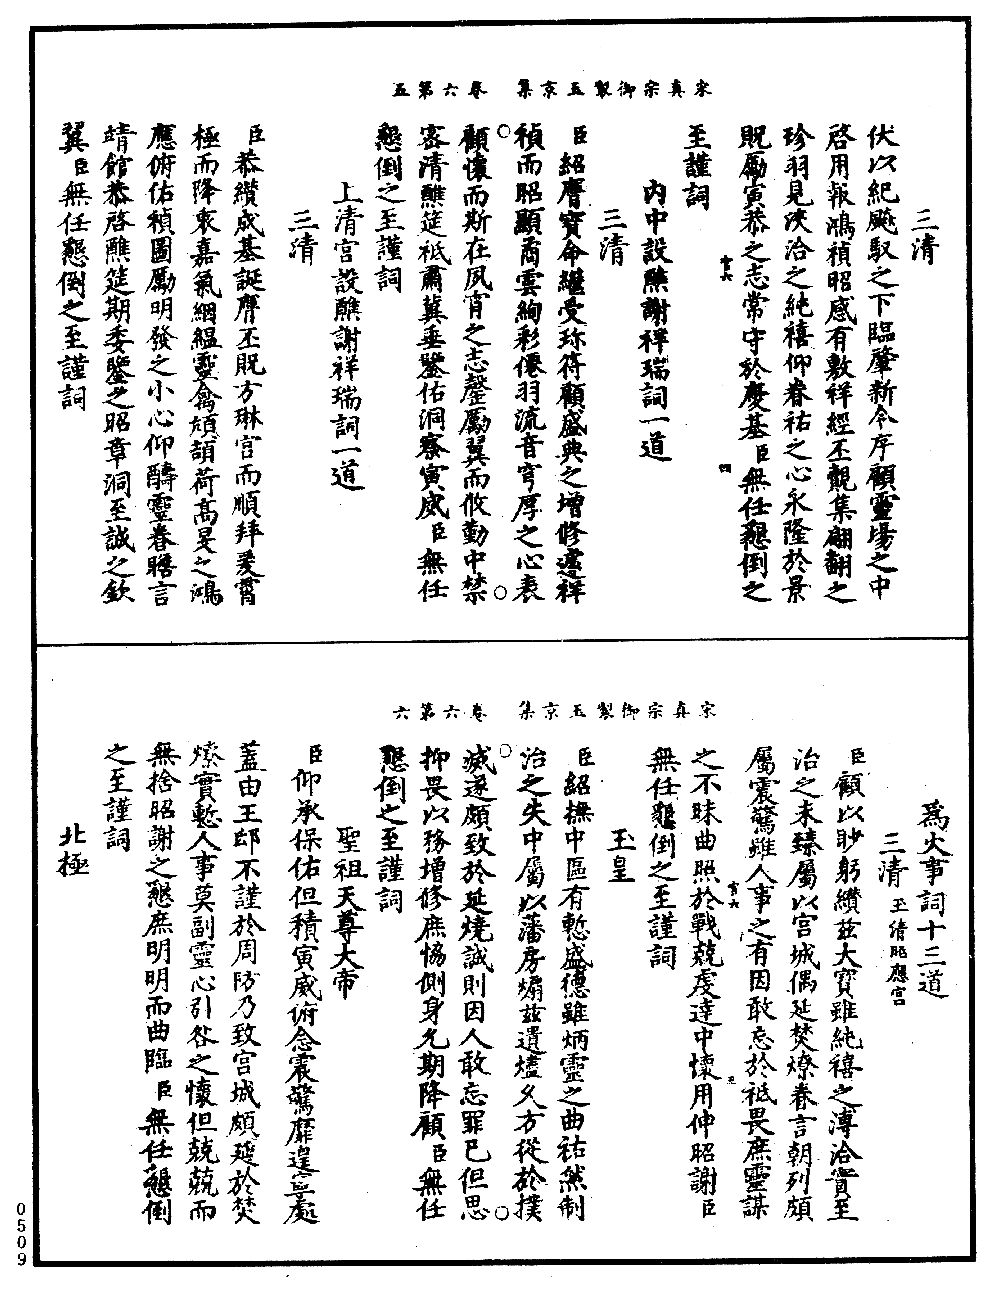 宋真宗御製玉京集　卷六第五
三清
伏以紀飈馭之下臨肇新令序顧靈場之中
啓用報鴻禎昭感有數祥經丕覿集翩翻之
珍羽見浹洽之純禧仰眷祐之心永隆於景
貺勵寅恭之志常守於慶基臣無任懇倒之
至謹詞
內中設醮謝祥瑞詞一道
三清
臣紹膺寶命繼受珎符顧盛典之增修遘祥
禎而昭顯矞雲絢彩僊羽流音穹厚之心表
顧懷而斯在夙宵之志罄勵翼而攸勤中禁
宻清醮筵祇肅冀垂鑒佑洞察寅威臣無任
懇倒之至謹詞
上清宮設醮謝祥瑞詞一道
三清
臣恭纘成基誕膺丕貺方琳宫而順拜爰霄
極而降衷嘉氣絪緼靈禽頏頡荷高旻之鴻
應俯佑禎圖勵明發之小心仰酬靈眷瞻言
靖館恭啓醮筵期委鑒之昭章洞至誠之欽
翼臣無任懇倒之至謹詞
宋真宗御製玉京集　卷六第六
爲火事詞十三道
三清 玉清昭應宮
臣顧以眇躬纘兹大寶雖純禧之溥洽實至
治之未臻屬以宫城偶延焚燎眷言朝列頗
屬震驚雖人事之有因敢忘於祇畏庶靈謀
之不昧曲照於戰兢虔達中懷用伸昭謝臣
無任懇倒之至謹詞
玉皇
臣紹撫中區有慙盛德雖炳靈之曲祐然制
治之失中屬以藩房煽兹遺燼久方從於撲
滅遂頗致於延燒誠則因人敢忘罪已但思
抑畏以務增修庶協側身允期降顧臣無任
懇倒之至謹詞
聖祖天尊大帝
臣仰承保佑但積寅威俯念震驚靡遑寧處
蓋由王邸不謹於周防乃致宮城頗延於焚
燎實慙人事莫副靈心引咎之懷但兢兢而
無捨昭謝之懇庶明明而曲臨臣無任懇倒
之至謹詞
北極
0509